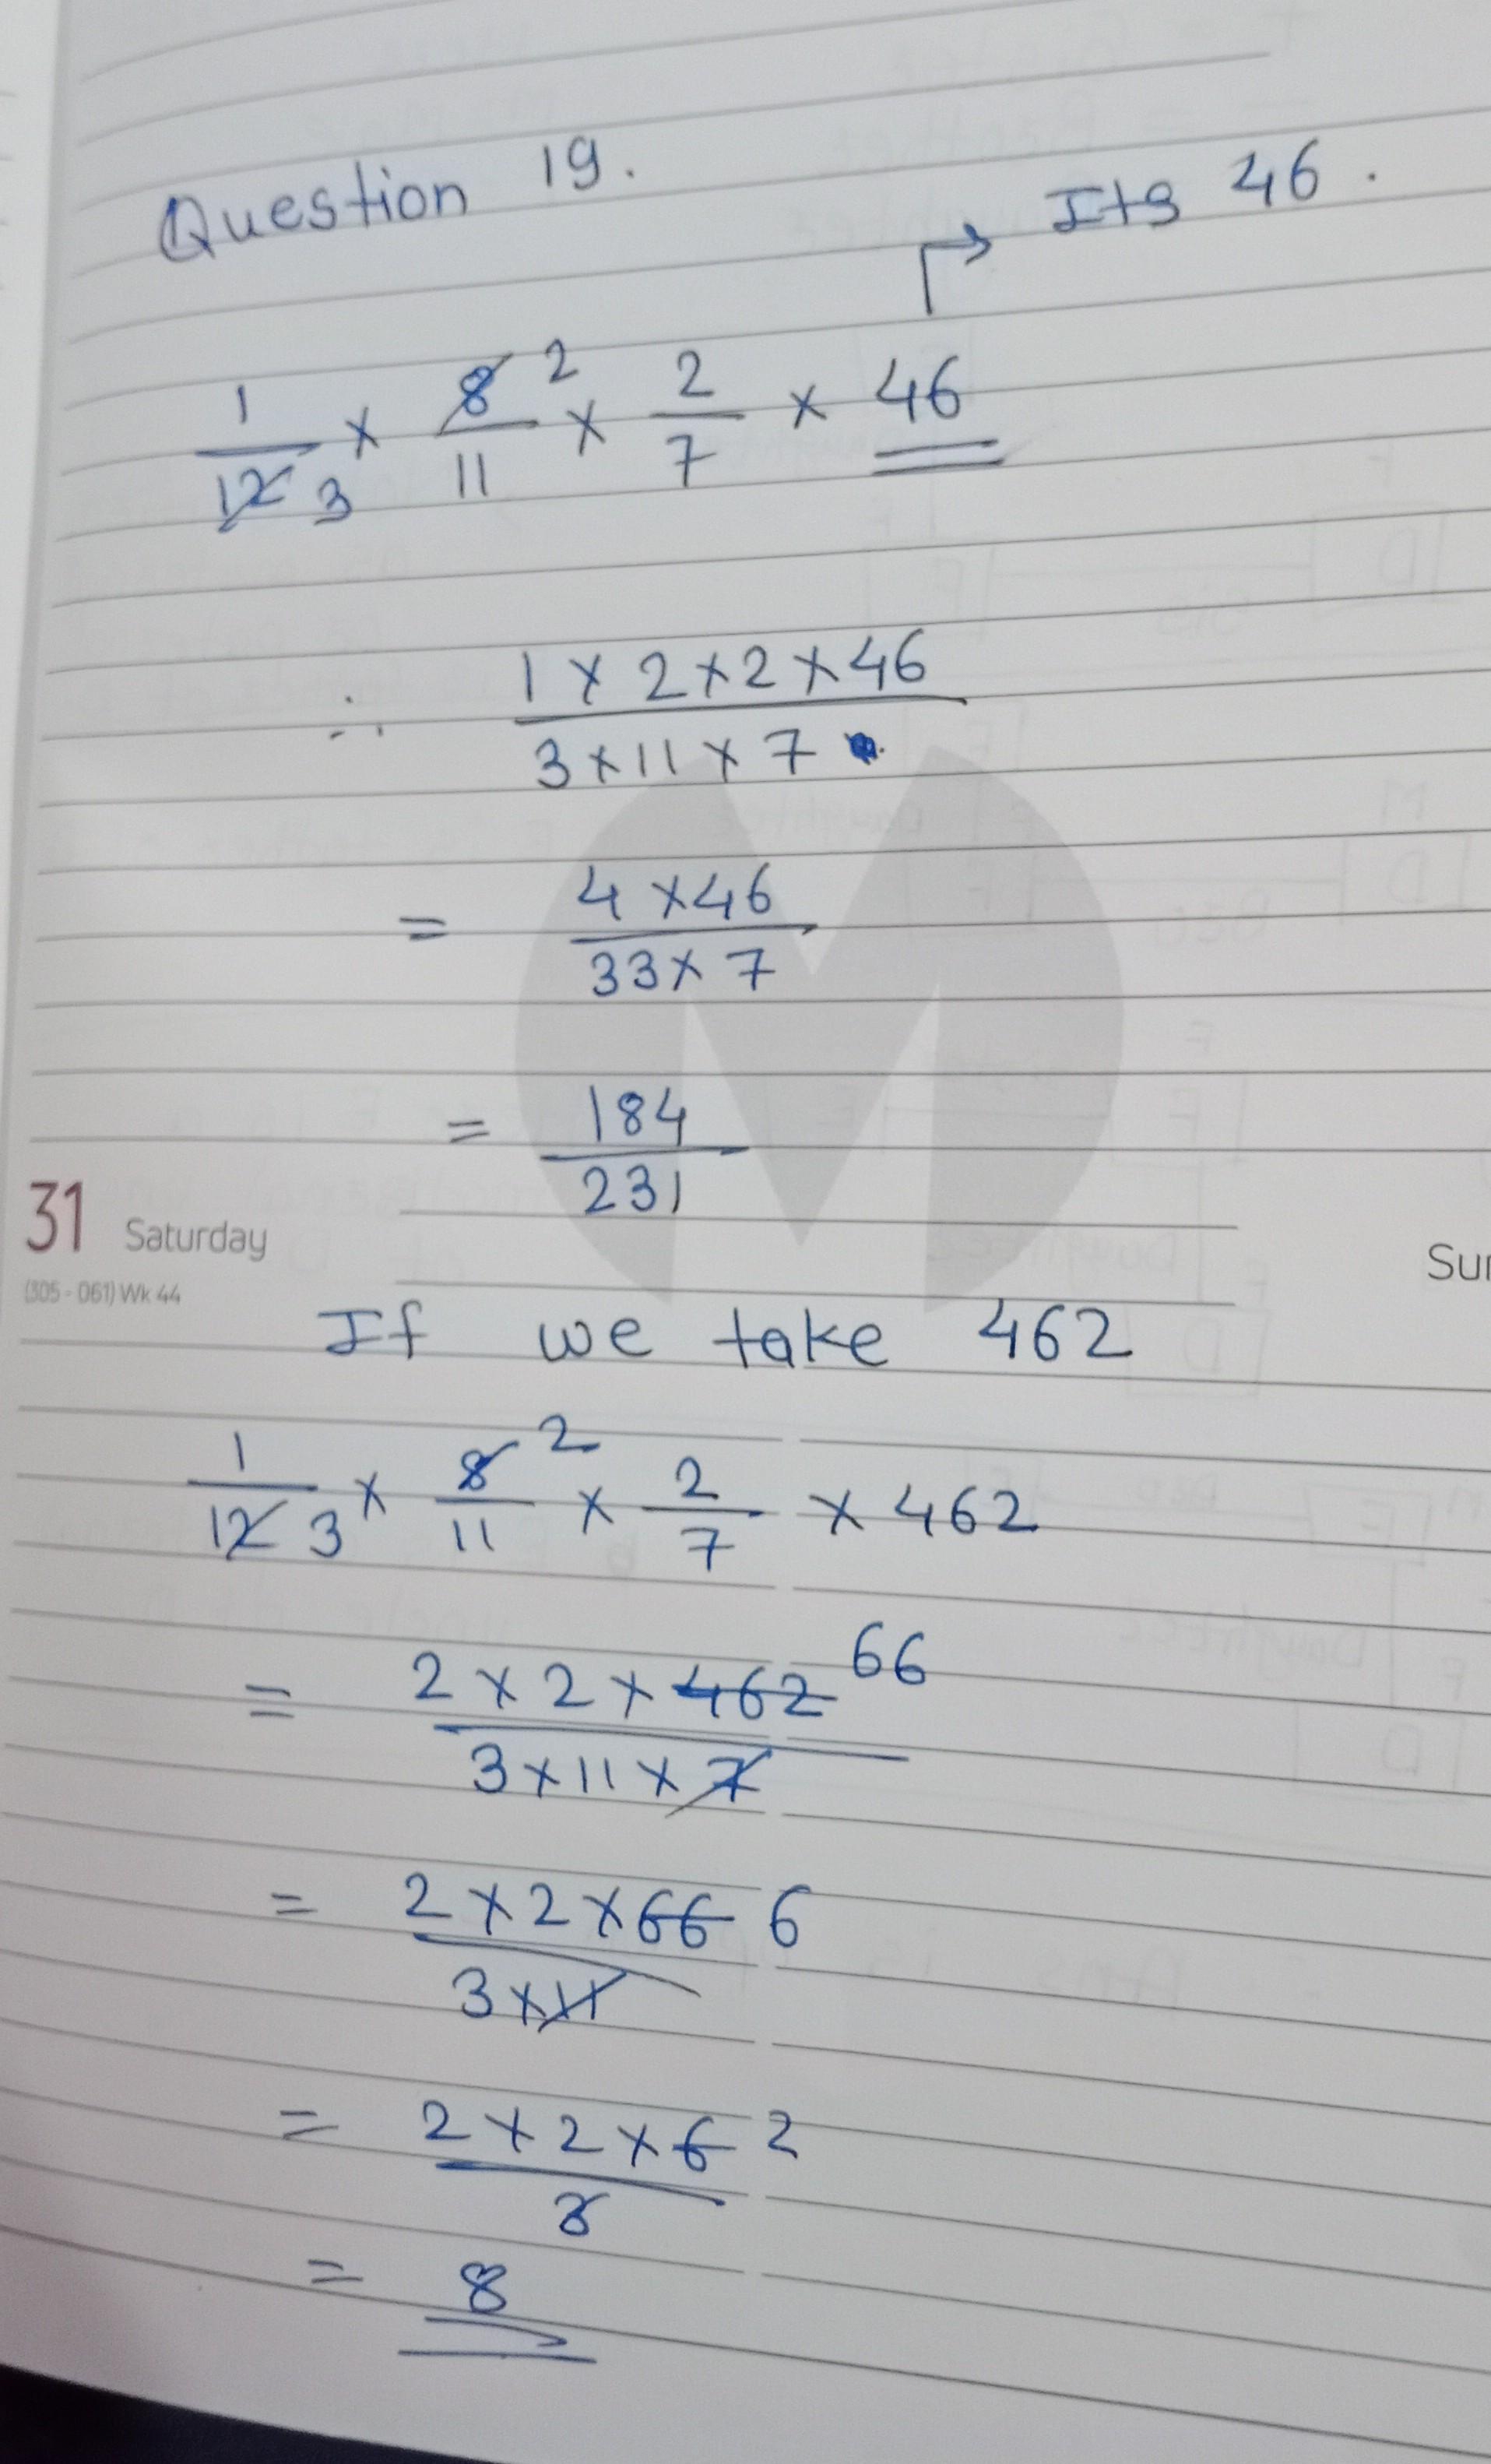 Question 19.
Its 46.
1/12 3 × 8/11 2 × 2/7 × 46
∴ 1 × 2 × 2 × 46 / 3 × 11 × 7
= 4 × 46 / 33 × 7
= 184 / 231
31 Saturday
(305 - 061) Wk 44
If we take 462
1/12 3 × 8/11 2 × 2/7 × 462
= 2 × 2 × 462 66 / 3 × 11 × 7
= 2 × 2 × 66 6 / 3 × 11
= 2 × 2 × 6 2 / 3
= 8